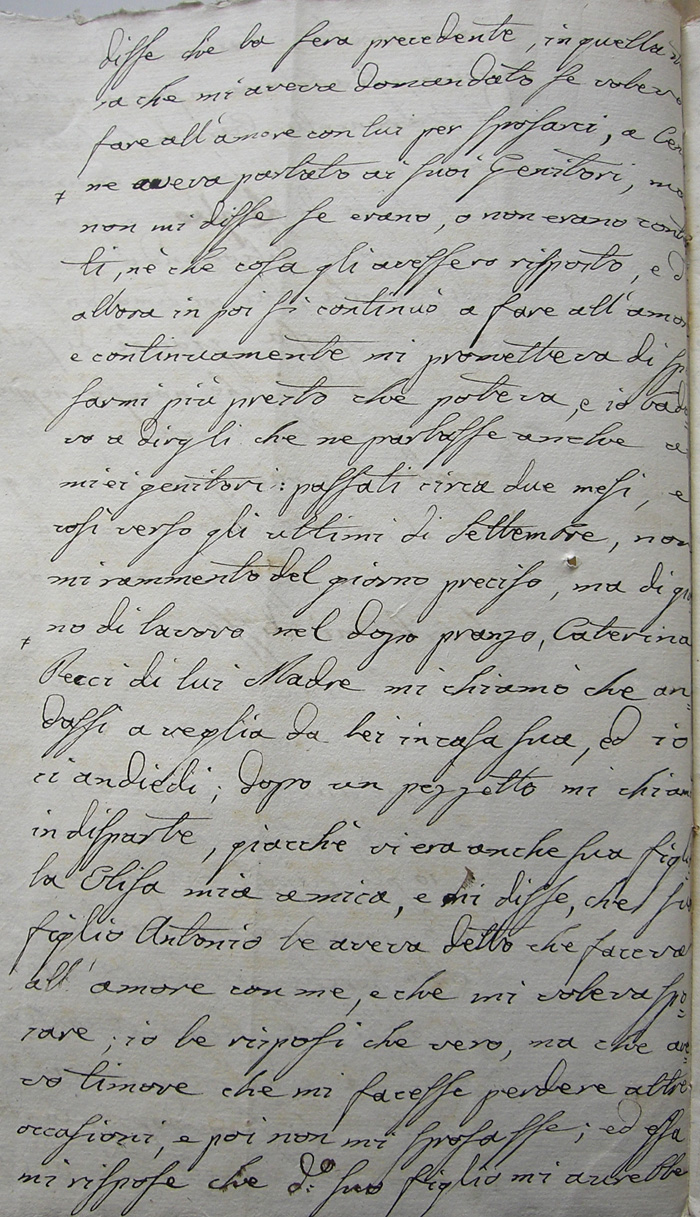 disse che la sera precedente, in quella
ra che mi aveva domandato se volevo
fare all'amore con lui per sposarci, a Cen
ne aveva parlato ai suoi Genitori, ma
non mi disse se erano, o non erano conte
ti, nè che cosa gli avessero risposto, e d
allora in poi si continuò a fare all'amor
e continuamente mi prometteva di sp
sarmi più presto che poteva, e io bada
vo a dirgli che ne parlasse anche a
miei genitori: passati circa due mesi, e
così verso gli ultimi di Settembre, non
mi rammento del giorno preciso, ma di gior
no di lavoro nel dopo pranzo, Caterina
Pecci di lui Madre mi chiamò che an=
dassi a veglia da lei in casa sua, ed io
ci andiedi; dopo un pezzetto mi chiam
in disparte, giacchè vi era anche sua figl
la Elisa mia amica, e mi disse, che su
figlio Antonio le aveva detto che faceva
all'amore con me, e che mi voleva spo=
sare; io le risposi che vero, ma che ave=
vo timore che mi facesse perdere altre
occasioni, e poi non mi sposasse; ed essa
mi rispose che do: suo figlio mi avrebbe